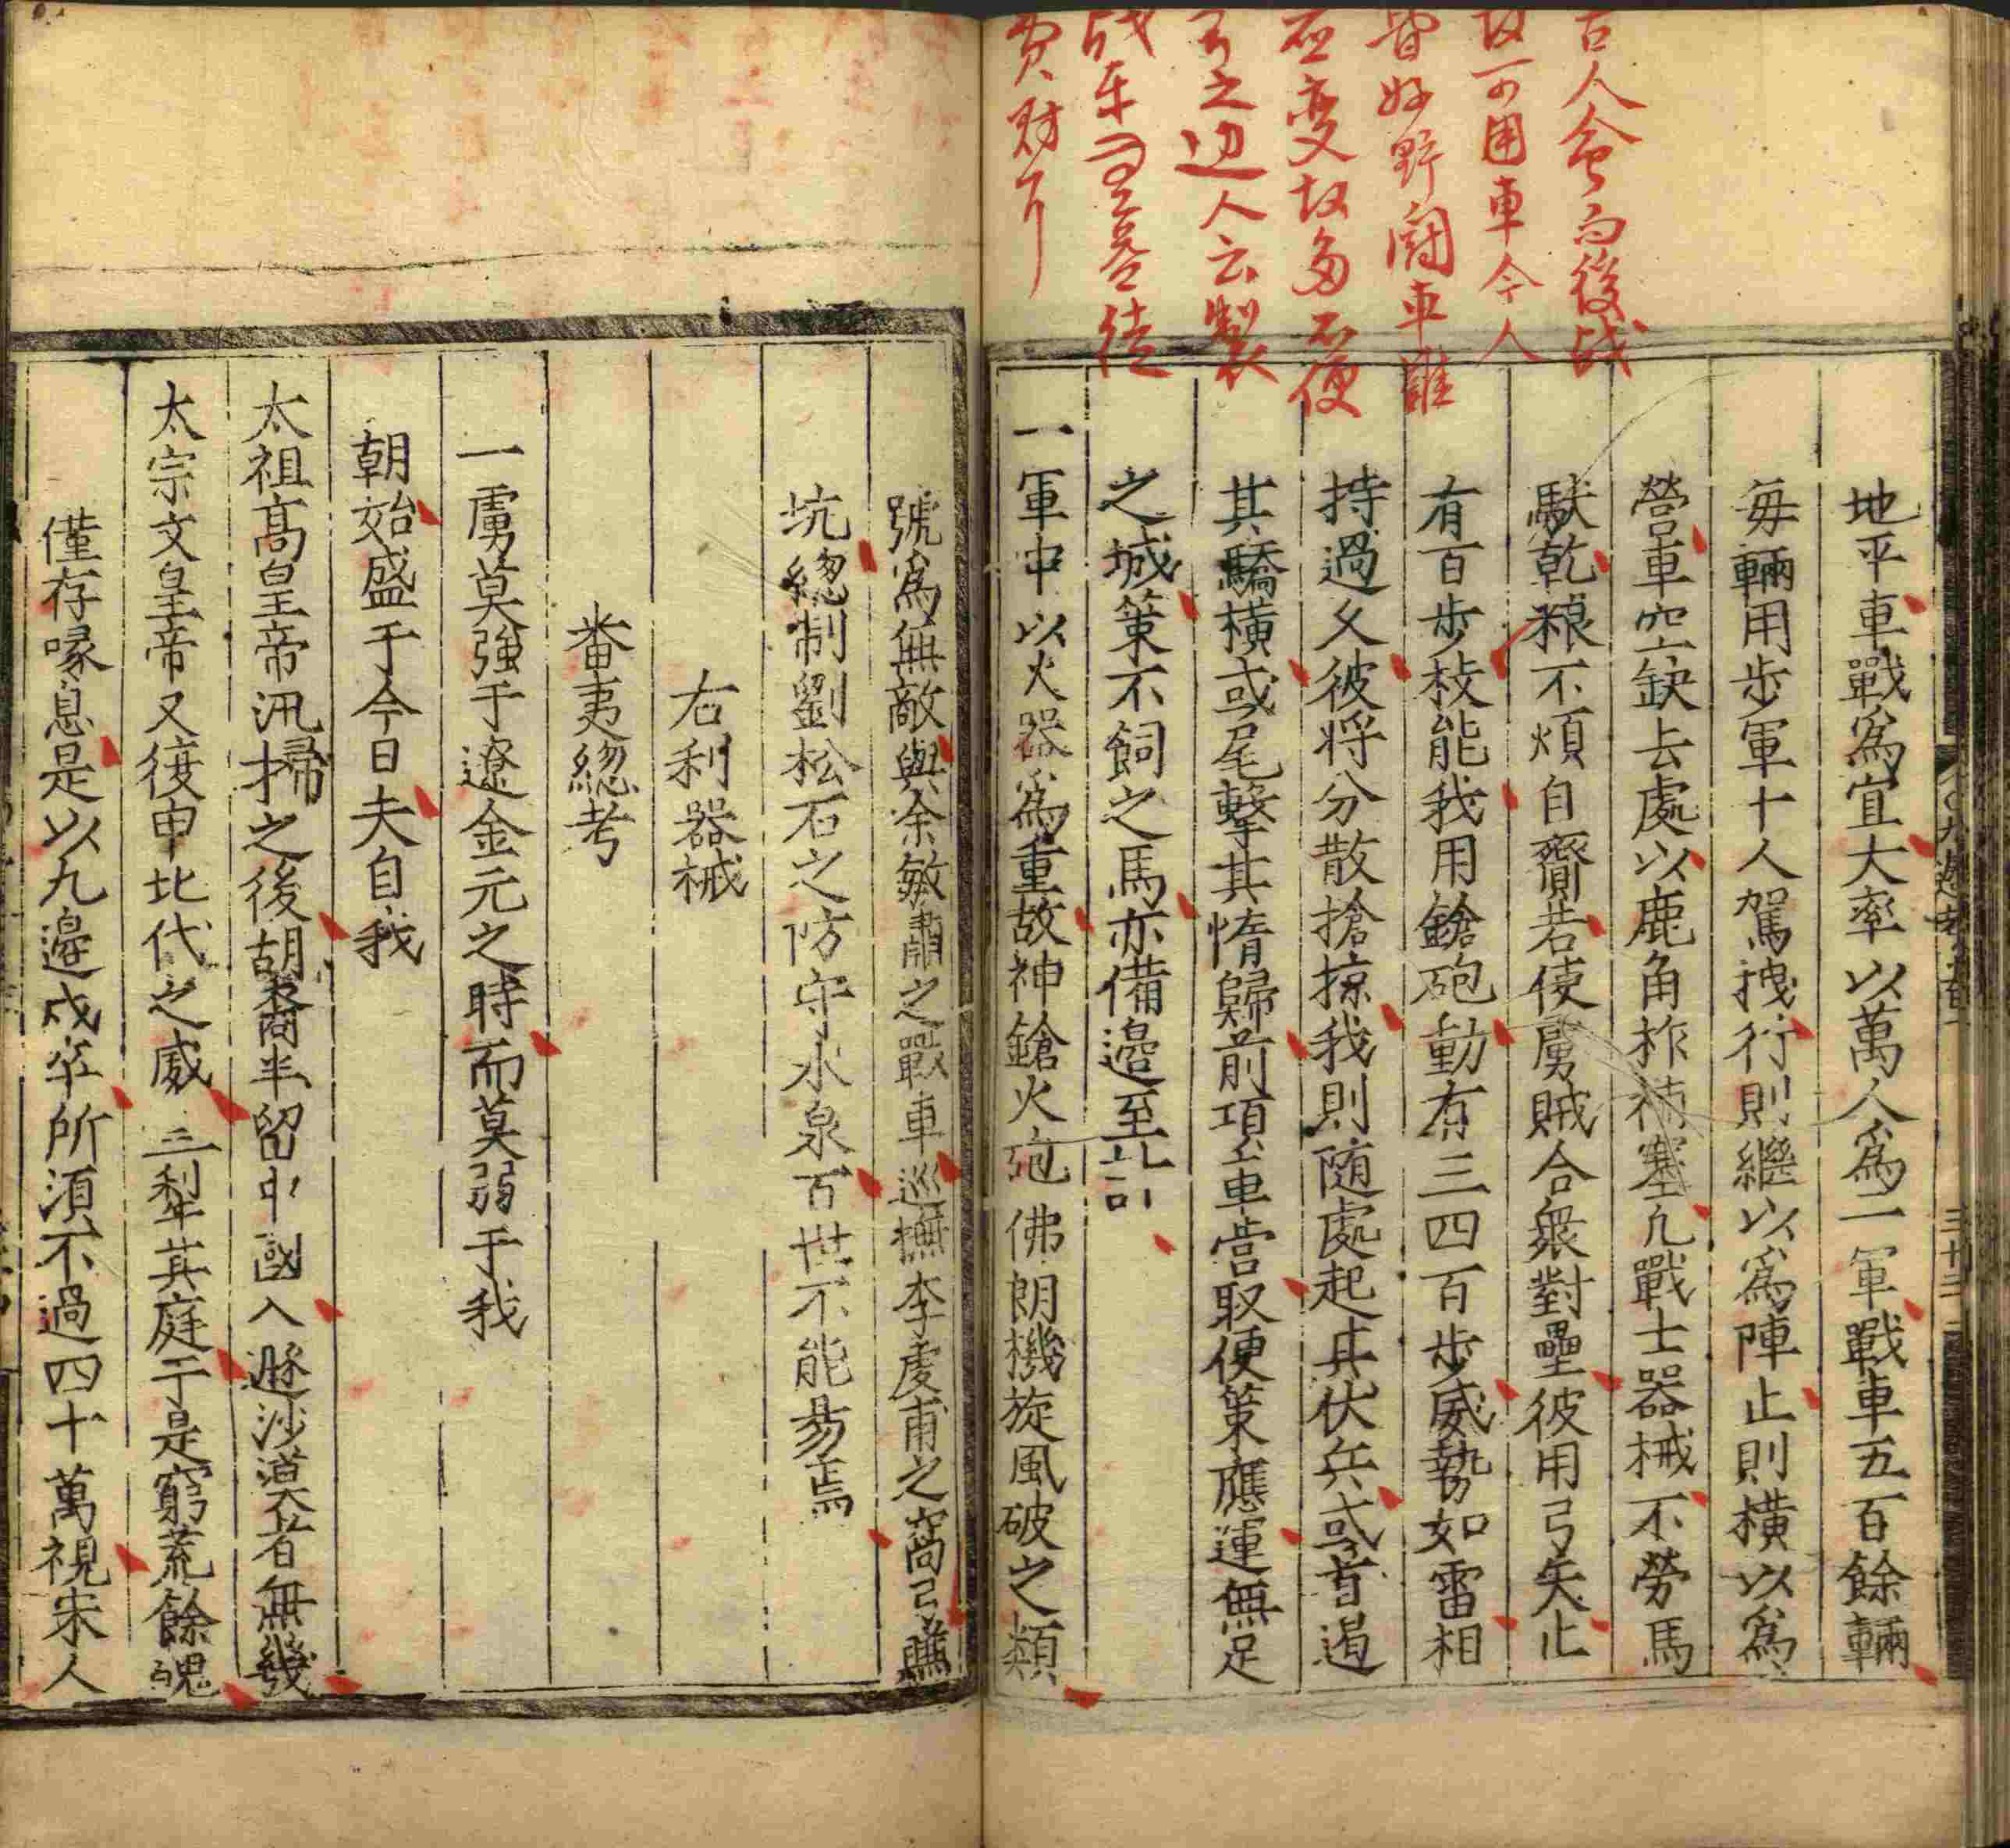 古人會而後战
故可用車今人
皆好野闘車难
应变故多不便
之边人云製
战车
费财
地平車戰爲宜大率以萬人爲一軍戰車五百餘輛
每輛用步軍十人駕拽行則繼以爲陣止則橫以爲
營車空缺去處以鹿角柞補塞凢戰士器械不勞馬
馱乾粮不煩自齎若使虜賊合衆對壘彼用弓矢止
有百步技能我用鎗砲動有三四百步威勢如雷相
持過久彼將分散搶掠我則随處起其伏兵或首遏
其驕橫或尾擊其惰歸前項車營取便策應運無足
之城策不飼之馬亦備邊至計
一軍中以火器爲重故神鎗火砲佛朗機旋風破之類
號爲無敵與余敏肅之戰車巡撫李虔甫之窩弓
坑緫制劉松石之防守水泉百世不能易焉
右利器械
番夷緫考
一虜莫強于遼金元之時而莫弱于我
朝始盛于今日夫自我
太祖高皇帝汛掃之後胡裔半留中國入遯沙漠者無幾
太宗文皇帝又復申北代之威三犁其庭于是窮荒餘魂
僅存喙息是以九邊戍卒所須不過四十萬視宋人